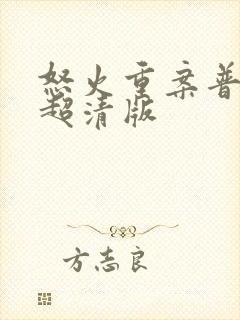 怒火重案普
超清版
方志良